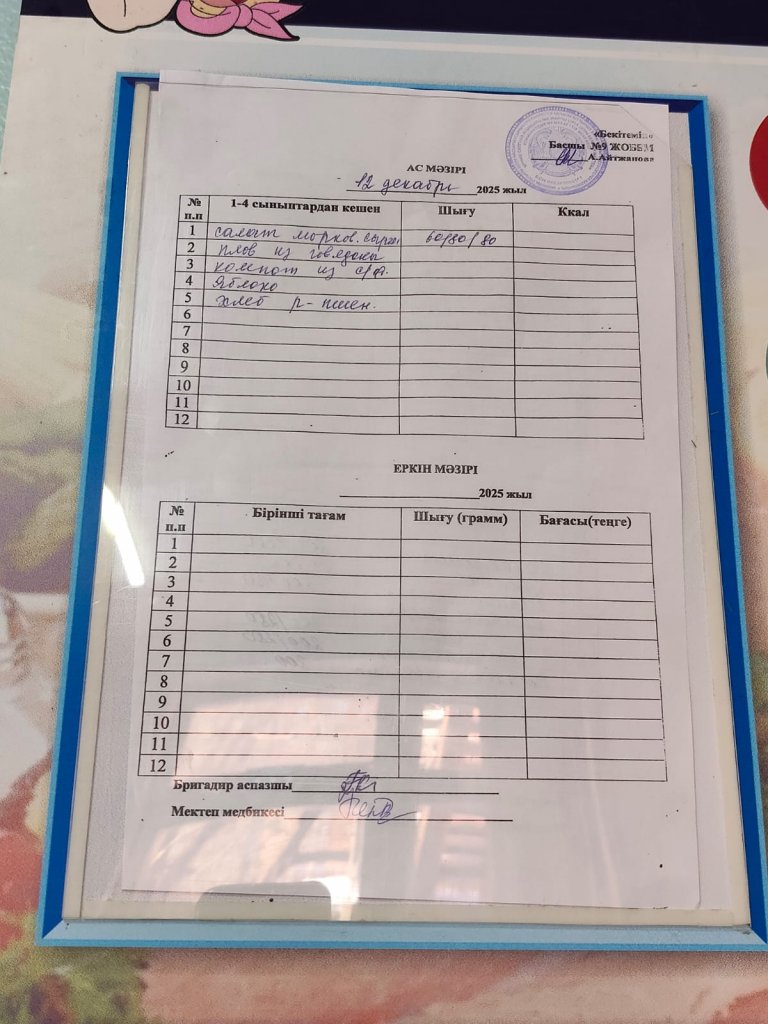 «Бекітемін»
Басшы №9 ЖОББМ
А.Айтжанова
АС МӘЗІРІ
12 декабря 2025 жыл
№ п.п 1-4 сыныптардан кешен Шығу Ккал
1 салат морков. 60/80/80
2 плов из говядины
3 компот из с/ф.
4 Яблоко
5 хлеб р-пшен.
6
7
8
9
10
11
12
ЕРКІН МӘЗІРІ
2025 жыл
№ п.п Бірінші тағам Шығу (грамм) Бағасы(теңге)
1
2
3
4
5
6
7
8
9
10
11
12
Бригадир аспазшы
Мектеп медбикесі